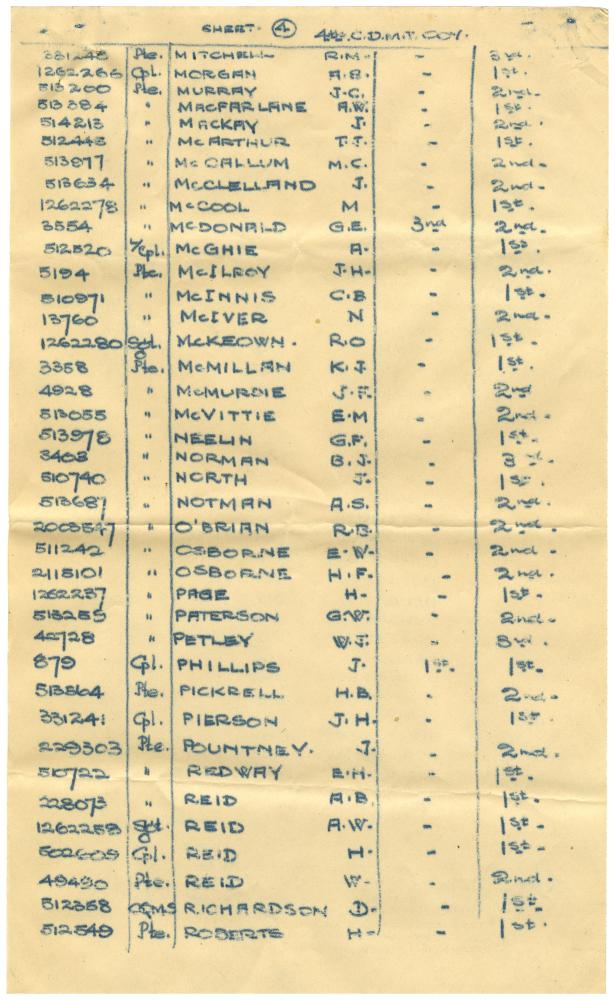 SHEET. 4 4th C.D.M.T. COY.
331248 Pte. MITCHELL R.M. - 3rd.
1262266 Cpl. MORGAN A.S. - 1st.
513200 Pte. MURRAY J.C. - 2nd.
513384 " MACFARLANE A.W. - 1st.
514213 " MACKAY J. - 2nd.
512443 " MCARTHUR T.J. - 1st.
513877 " MCCALLUM M.C. - 2nd.
513634 " MCCLELLAND J. - 2nd.
1262278 " MCCOOL M - 1st.
3554 " MCDONALD G.E. 3rd 2nd.
512520 L/Cpl. MCGHIE A. - 1st.
5194 Pte. MCILROY J.H. - 2nd.
510971 " MCINNIS C.B - 1st.
13760 " MCIVER N - 2nd.
1262280 Sgt. MCKEOWN. R.O - 1st.
3358 Pte. MCMILLAN K.J - 1st.
4928 " MCMURDIE J.F. - 2nd
513055 " MCVITTIE E.M - 2nd.
513978 " NEELIN G.F. - 1st.
3403 " NORMAN G.J. - 3rd.
510740 " NORTH J. - 1st.
513687 " NOTMAN A.S. - 2nd.
2003547 " O'BRIAN R.B - 2nd.
511242 " OSBORNE E.W. - 2nd.
2115101 " OSBORNE H.F. - 2nd.
1262237 " PAGE H. - 1st.
513255 " PATERSON G.W. - 2nd.
42728 " PETLEY W.J. - 3rd.
879 Cpl. PHILLIPS J. 1st. 1st.
513864 Pte. PICKRELL H.B. - 2nd.
331241 Cpl. PIERSON J.H. - 1st.
229303 Pte. POUNTNEY. J. - 2nd.
510722 " REDWAY E.H. - 1st.
228073 " REID A.B. - 1st.
1262259 Sgt. REID A.W. - 1st.
502609 Cpl. REID H. - 1st.
49490 Pte. REID W. - 2nd.
512358 CQMS RICHARDSON D. - 1st.
512549 Pte. ROBERTS H. - 1st.